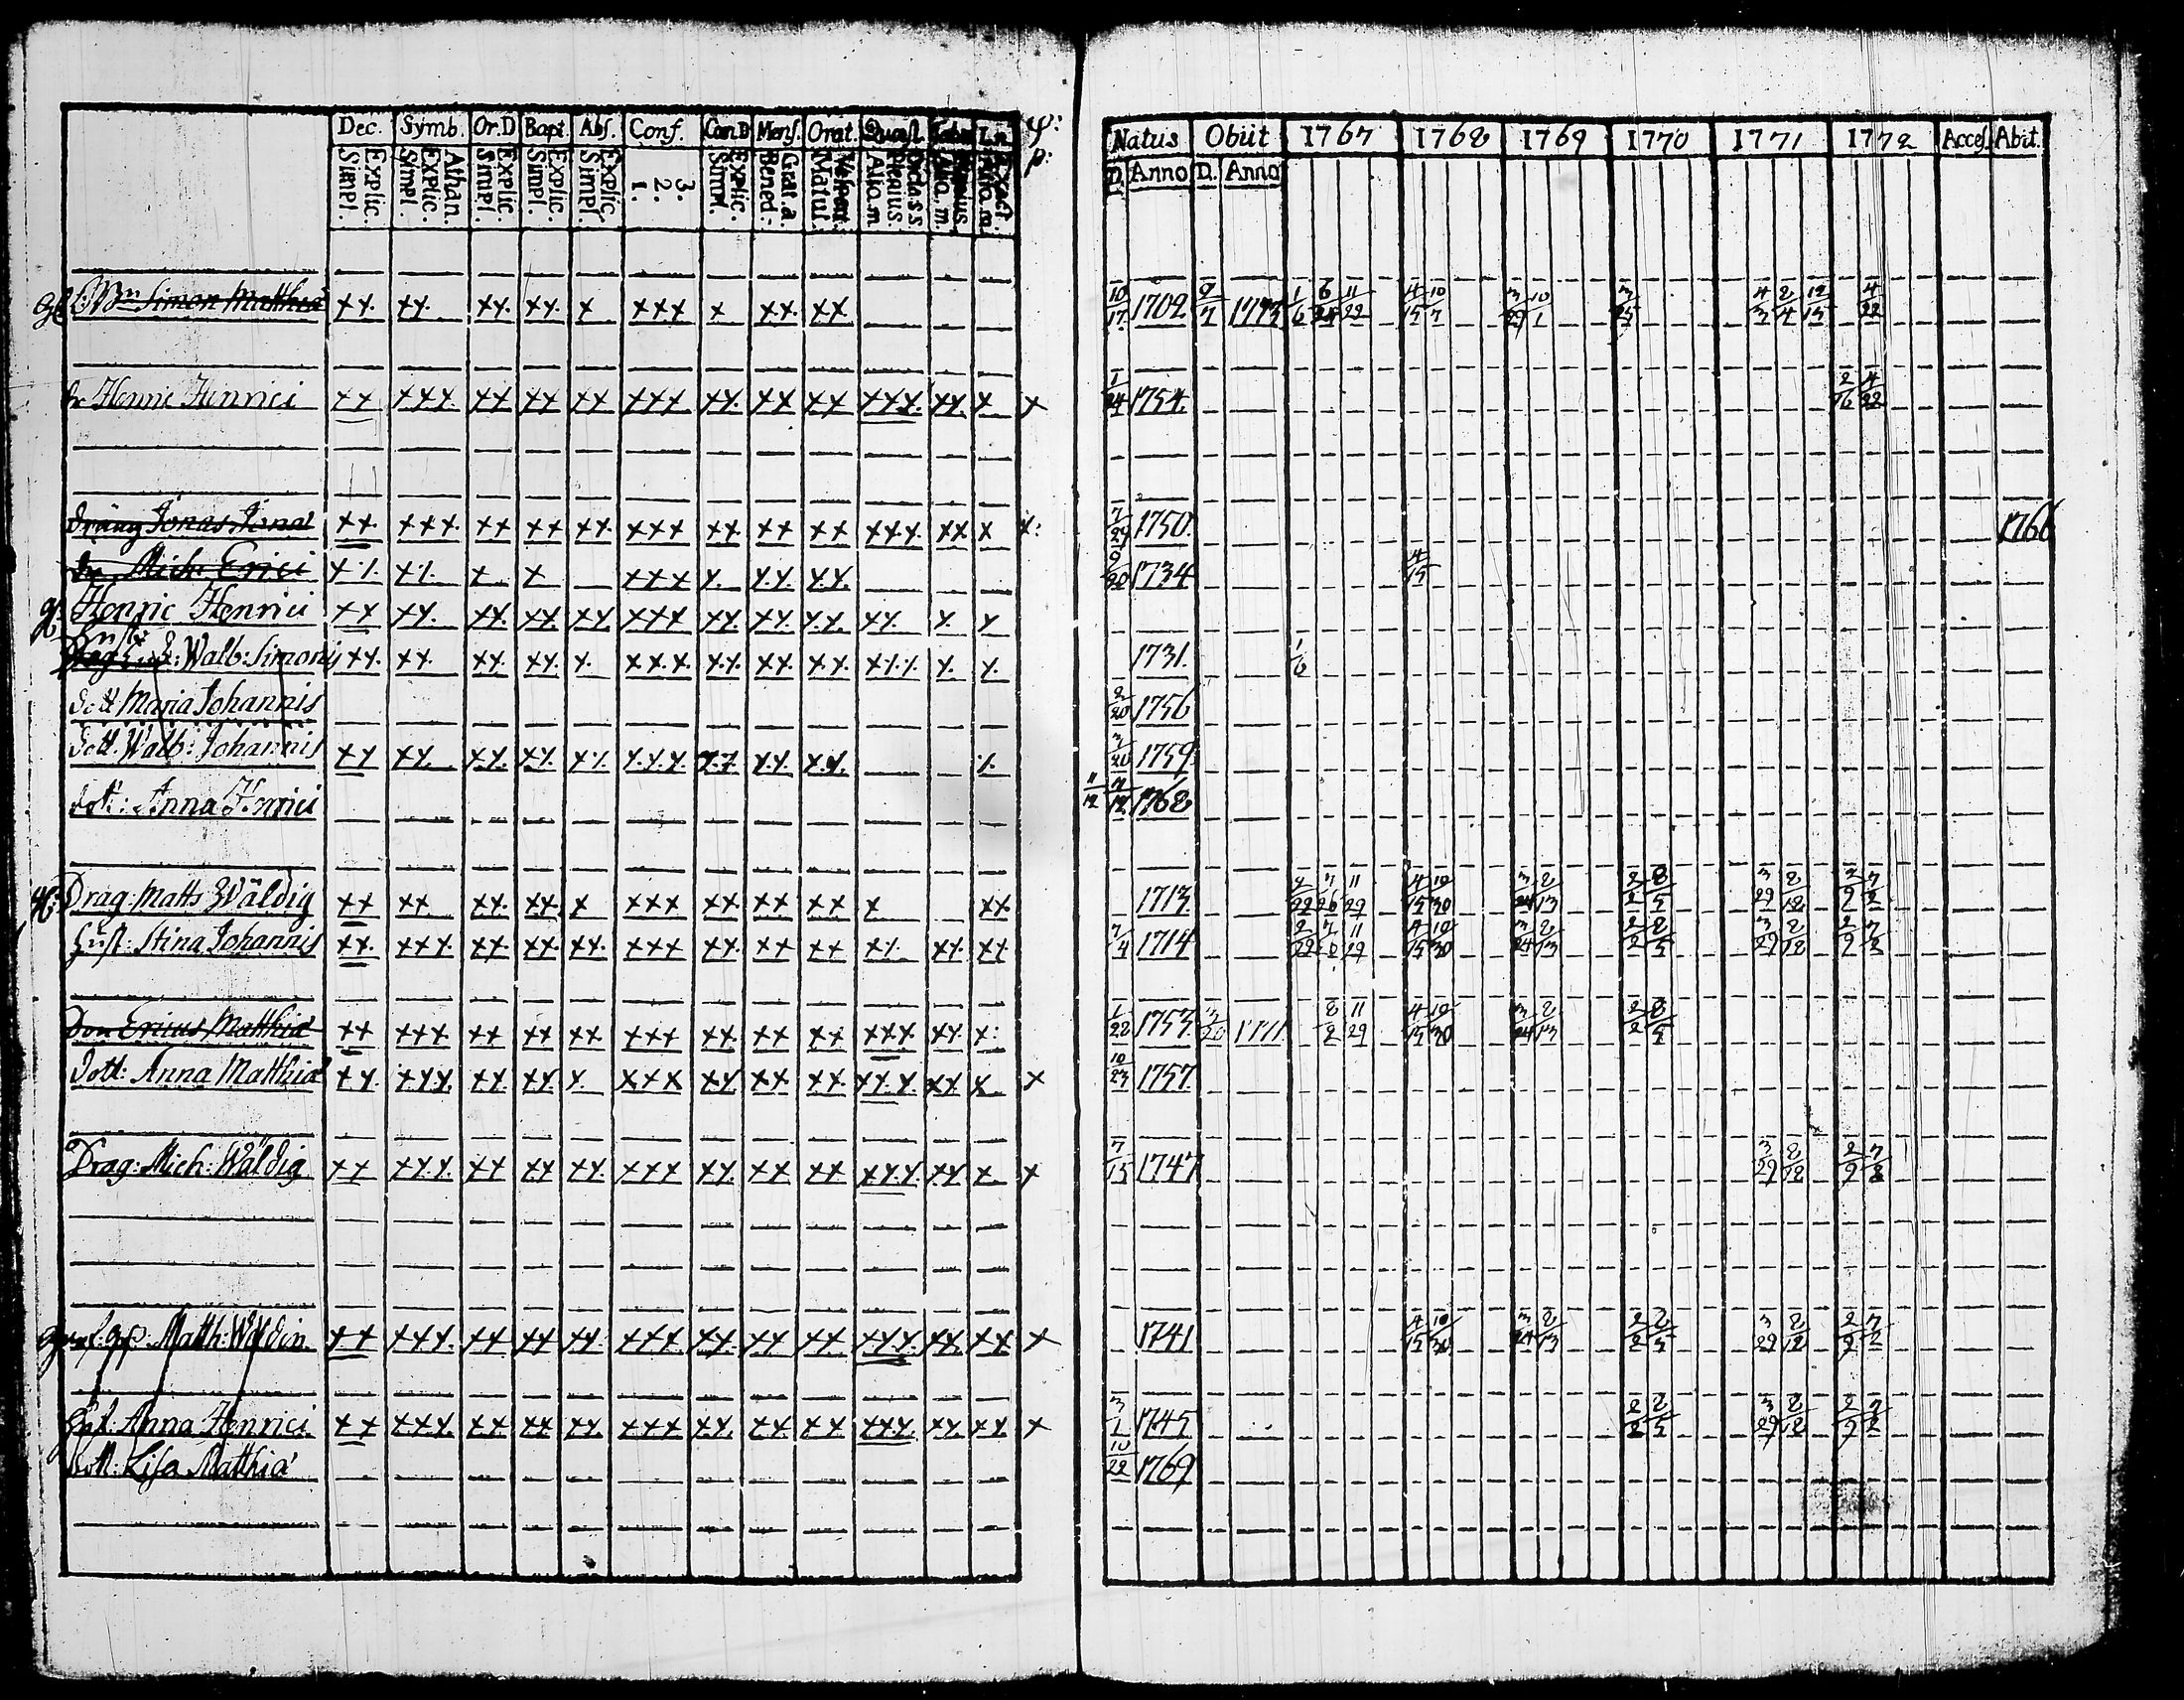 Dec. Symb. Or.D Bapt. Abs. Conf. Cœn.D Mens. Orat. Quæst. Φ: Natus Obiit 1767 1768 1769 1770 1771 1772 Acces. Abiit.
Explic. Simpl. Athan. Explic. Simpl. Explic. Simpl. Explic. Simpl. Explic. Simpl. 3. 2. 1. Explic. Simpl. Grat. a. Bened. Vespert. Matut. Plenius. Aliq.m Aliq.m p: D. Anno D. Anno
Simon Matthiæ xx xx xx xx x xxx x xx xx 10/17 1702 1773 1/6 11/22 4/15 10/7 3/29 10/1 3/25 4/3 8/4 12/15 4/22
Henric Henrici xx xxx xx xx xx xxx xx xx xx xxx xx x x 1/24 1754 2/16 4/22
Dräng Jonas Jonæ xx xxx xx xx xx xxx xx xx xx xxx xx x x: 7/29 1750 1766
Mich: Erici xx xx x x xxx x xx xx 9/20 1734 4/15
Henric Henrici xx xx xx xx xx xxx xx xx xx xx x x
Hust:
Walb: Simonis xx xx xx xx x xxx xx xx xx xxx x x 1731 1/6
Dott Maria Johannis 2/20 1756
Dott. Walb: Johannis xx xx xx xx xx xxx xx xx xx x 3/20 1759
Dott: Anna Henrici 11/12 11/12 1768
Drag: Matts Wäldig xx xx xx xx x xxx xx xx xx x xx 1713 2/22 7/26 11/29 4/15 10/30 3/24 8/13 2/2 8/5 3/29 8/18 2/9 7/8
Hust: Stina Johannis xx xxx xx xx xx xxx xx xx xx xx xx xx 7/4 1714 2/22 7/6 11/29 4/15 10/30 3/24 8/13 2/2 8/5 3/29 8/18 2/9 7/8
Son Ericus Matthiæ xx xxx xx xx xx xxx xx xx xx xxx xx x: 1/22 1753 3/20 1771 8/2 11/29 4/15 10/30 3/24 8/13 2/2 8/5
Dott: Anna Matthiæ xx xxx xx xx x xxx xx xx xx xxx xx x x 10/23 1757
Drag: Mich: Wäldig xx xxx xx xx xx xxx xx xx xx xxx xx x x 7/15 1747 3/29 8/18 2/9 7/8
Matth: Wäldin xx xxx xx xx xx xxx xx xx xx xxx xx xx x 1741 4/15 10/30 3/24 8/13 2/2 8/5 3/29 8/18 2/9 7/8
Anna Henrici xx xxx xx xx xx xxx xx xx xx xxx xx xx x 3/1 1745 2/2 8/5 3/29 8/18 2/9 7/8
Dott: Lisa Matthiæ 10/22 1769